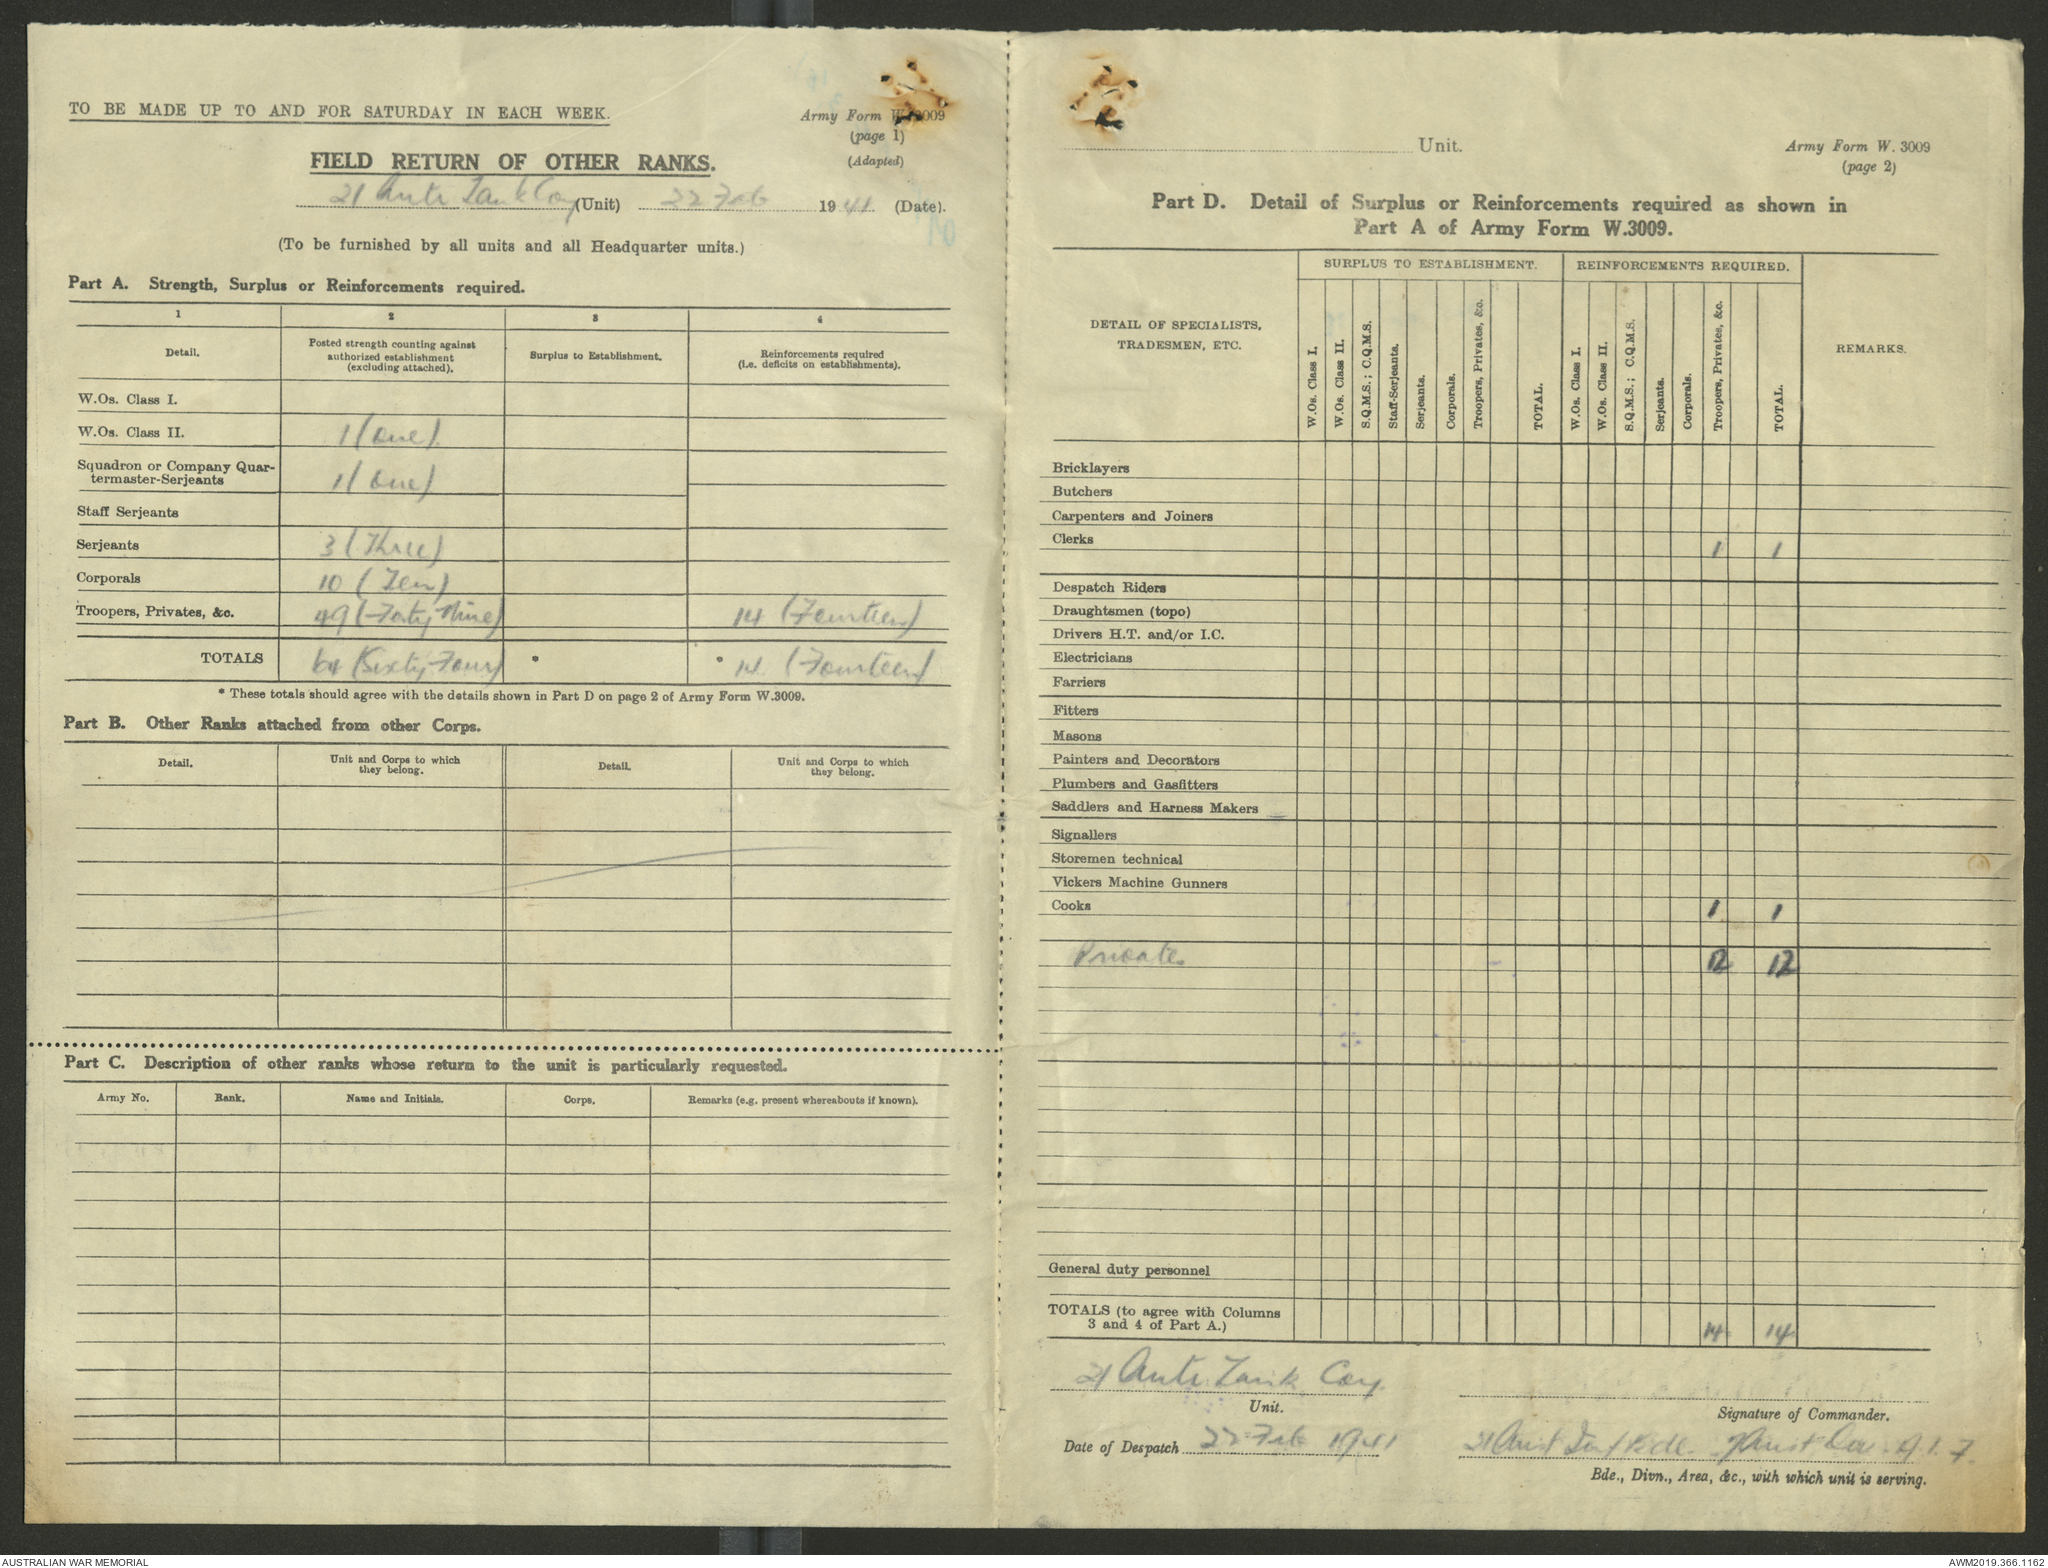 TO BE MADE UP TO AND FOR SATURDAY IN EACH WEEK.
Army Form W.3009
(page 1)
(Adapted)
FIELD RETURN OF OTHER RANKS.
21 Anti Tank Coy (Unit) 22 Feb 1941 (Date).
(To be furnished by all units and all Headquarter units.)
Part A. Strength, Surplus or Reinforcements required.
1 2 3 4
Detail. Posted strength counting against authorized establishment (excluding attached). Surplus to Establishment. Reinforcements required (i.e. deficits on establishments).
W.Os. Class I.
W.Os. Class II. 1 (One).
Squadron or Company Quar-
termaster-Serjeants 1 (One)
Staff Serjeants
Serjeants 3 (Three)
Corporals 10 (Ten)
Troopers, Privates, &c. 49 (Forty Nine) 14 (Fourteen)
TOTALS 64 (Sixty Four) * * 14 (Fourteen)
* These totals should agree with the details shown in Part D on page 2 of Army Form W.3009.
Part B. Other Ranks attached from other Corps.
Detail. Unit and Corps to which they belong. Detail. Unit and Corps to which they belong.
Part C. Description of other ranks whose return to the unit is particularly requested.
Army No. Rank. Name and Initials. Corps. Remarks (e.g. present whereabouts if known).
Unit.
Army Form W. 3009
(page 2)
Part D. Detail of Surplus or Reinforcements required as shown in
Part A of Army Form W.3009.
DETAIL OF SPECIALISTS, TRADESMEN, ETC.
SURPLUS TO ESTABLISHMENT. REINFORCEMENTS REQUIRED.
W.Os. Class I. W.Os. Class II. S.Q.M.S.; C.Q.M.S. Staff-Serjeants. Serjeants. Corporals. Troopers, Privates, &c. TOTAL. W.Os. Class I. W.Os. Class II. S.Q.M.S.; C.Q.M.S. Serjeants. Corporals. Troopers, Privates, &c. TOTAL. REMARKS.
Bricklayers
Butchers
Carpenters and Joiners
Clerks 1 1
Despatch Riders
Draughtsmen (topo)
Drivers H.T. and/or I.C.
Electricians
Farriers
Fitters
Masons
Painters and Decorators
Plumbers and Gasfitters
Saddlers and Harness Makers
Signallers
Storemen technical
Vickers Machine Gunners
Cooks 1 1
Privates 12 12
General duty personnel
TOTALS (to agree with Columns
3 and 4 of Part A.) 14 14
21 Anti Tank Coy
Unit.
Signature of Commander.
Date of Despatch 22 Feb 1941
21 Aust Inf Bde 7 Aust Div A.I.F.
Bde., Divn., Area, &c., with which unit is serving.
AUSTRALIAN WAR MEMORIAL
AWM2019.366.1162